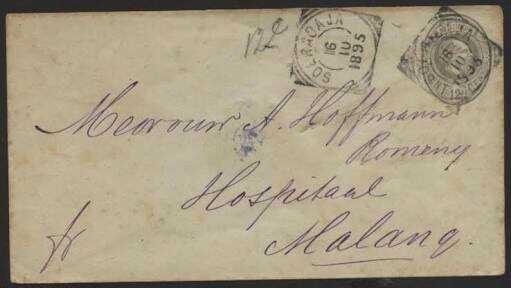 12c
SOERABAJA
16
10
1895
16
10
1895
Mevrouw A. Hoffmann
Romeny
Hospitaal
fr
Malang.